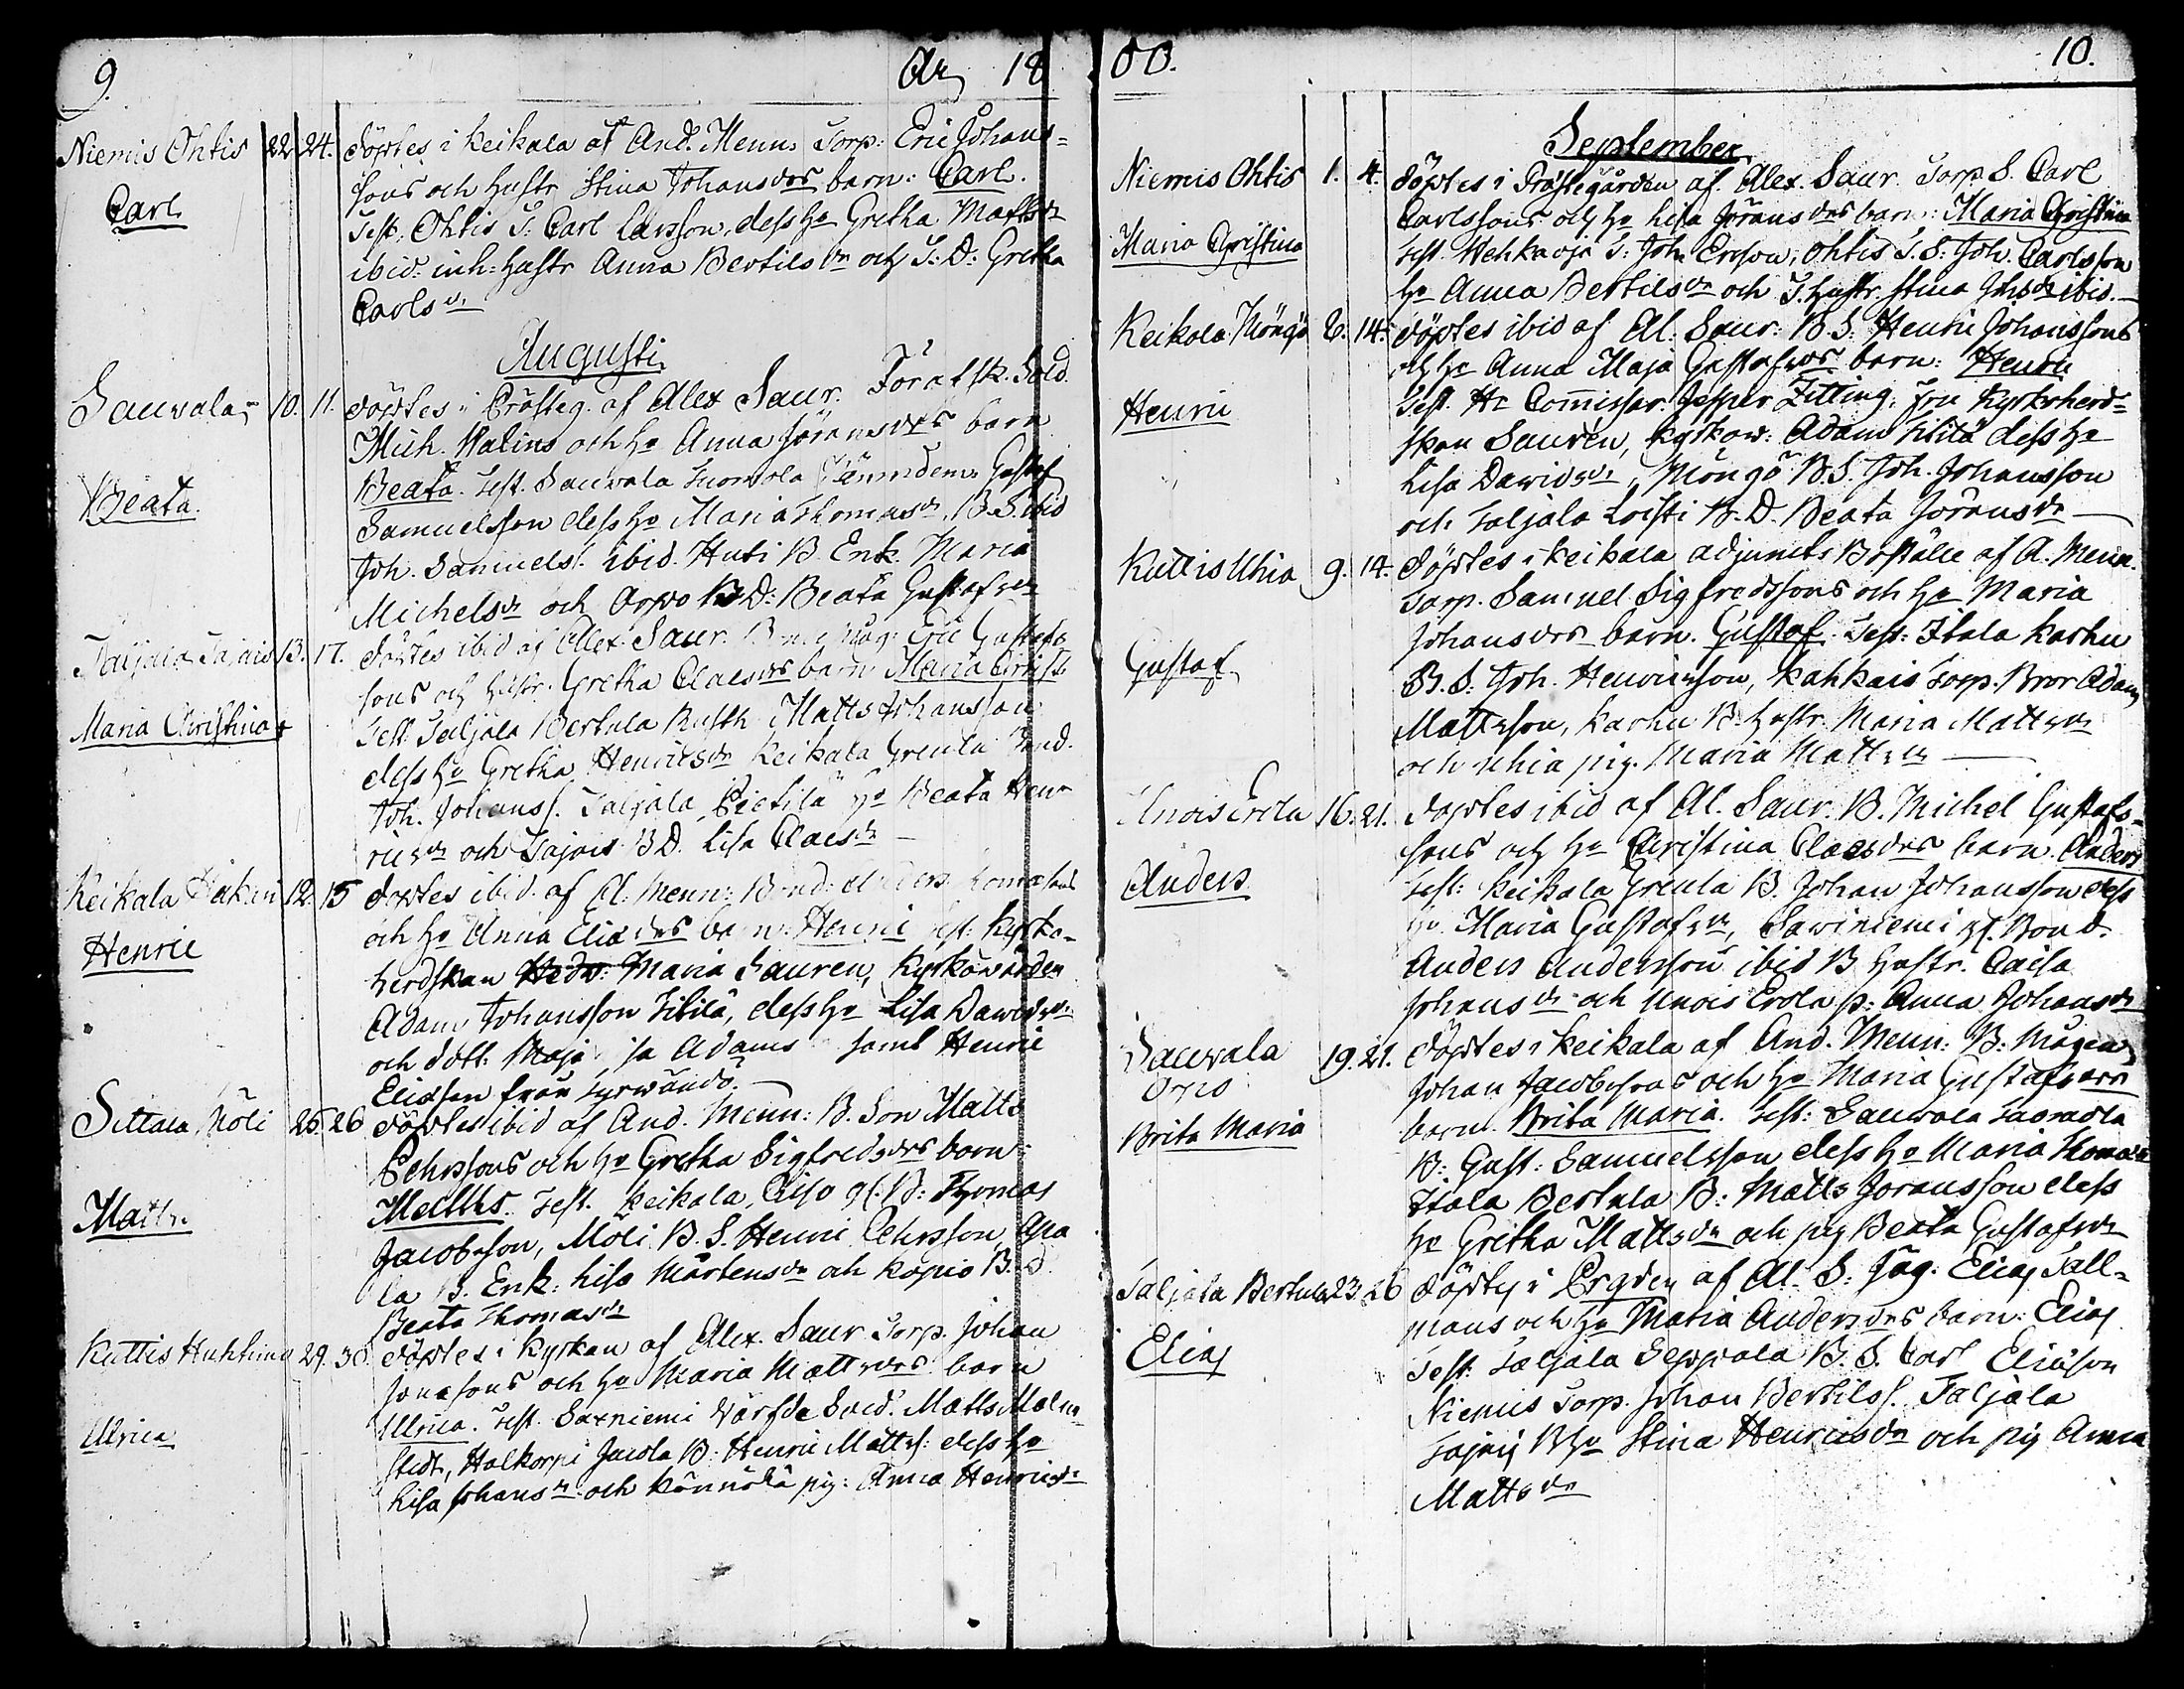 9. År 18
Niemis Ohtis 22 24. döptes i Keikala af And. Menn. Torp: Eric Johans=
sons och hustr Stina Johansdrs barn: Carl.
Carl
Test, Ohtis T: Carl Carlsson, dess ho Gretha Mattsdr
ibid: inh: hustr Anna Bertilsdr och T: D: Gretha
Carlsdr
Augusti
Sauvala 10. 11. döptes i Prästeg. af Alex Saur. Förafsk. Sold.
Mich. Malins och ho Anna Jöransdrs barn
Beata.
Beata. Test. Sauvala Nämndem. Gustaf
Samuelsson dess ho Maria Thomasdr, B. S. ibid
Joh. Samuels. ibid. Huti B. Enk. Maria
Michelsdr och Orpo B D: Beata Gustafsdr
Taljala Tajais 13. 17. döptes ibid af Alex. Saur. Eric Gustafs
sons och hustr. Gretha Claesdrs barn Maria Christ.
Maria Christina
Test Taljala Bertula Rusth Matts Johansson
dess ho Gretha Henricsdr Keikala Greula Bond.
Joh. Johanss. Taljala Pietilä ho Beata Hen=
ricsdr och Tajais B D. Lisa Claesdr
Keikala 12. 15 döptes ibid. af A. Menn: Bond:
och ho Anna Eliædrs barn: Henric Test: Kyrko=
Henric
herdskan Maria Sauren, Kyrkowärden
Adam Johansson Fililä, dess ho Lisa Dawidsdr
och dott. Maja Adams samt Henric
Eliæson från Tyrwändö.
Sittala Möli 25 26 döptes ibid af And. Menn: B. Son Matts
Pehrssons och ho Gretha Sigfredsdrs barn:
Matts.
Matths. Test. Keikala, B: Thomas
Jacobsson, Möli B. S. Henric Pehrsson, Apa
la B. Enk: Lisa Mårtensdr och Kopio B. D.
Beata Thomasdr
Kuttis Huhtimo 29. 30. döptes i Kyrkan af Alex. Saur Torp. Johan
Jonæsons och ho Maria Mattsdrs barn
Ulrica
Ulrica. Test. Sarniemi Matts Malm=
stedt, Halkorpi B: Henric Mattss: dess ho
Lisa Johansdr och pig: Anna Henricsdr
00. 10.
September
Niemis Ohtis 1. 4. döptes i Prästegården af Alex. Saur. Torp. S. Carl
Carlssons och ho Lisa Jöransdrs barn: Maria Christina
Maria Christina
Test. Wehkaoja T: Joh: Ericson, Ohtis T. S: Joh. Carlsson
ho Anna Bertilsdr och T. hustr. Stina Johsdr ibid.
Keikala Möngö 6. 14. döptes ibid af Al. Saur: B S: Henric Johanssons
och ho Anna Maja Gustafsdrs barn: Henric
Henric
Test. Hr Commissar. Jesper Zitting, Fru Kyrkoherd=
skan Sauren, Kyrkow: Adam Fililä dess ho
Lisa Dawidsdr, Möngö B. S. Joh. Johansson
och Taljala Loisti B. D. Beata Jöransdr
Kuttis Uhia 9. 14. döptes i Keikala adjuncts Boställe af A. Menn.
Torp. Samuel Sigfredssons och ho Maria
Johansdrs barn. Gustaf. Test: Itala Karhu
Gustaf
B. S: Joh. Henricsson, Kahkais Torp. Bror Adam
Mattsson, Karhu B. hustr Maria Mattsdr
och Uhia pig. Maria Mattsdr
Unois Erola 16. 21. döptes ibid af Al. Saur. B. Michel Gustafs=
sons och ho Christina Claesdrs barn. Anders
Anders
Test: Keikala Greula B. Johan Johansson dess
ho Maria Gustafsdr, Sawiniemi Bond.
Anders Andersson ibid B hustr. Caisa
Johansdr och Unois Erola p: Anna Johansdr
Sauvala 19. 21. döptes i Keikala af And. Menn: B: Mågen
Orpo
Johan Jacobssons och ho Maria Gustafsdrs
Brita Maria
barn Brita Maria. Test: Sauvala
B: Gust: Samuelsson dess ho Maria Thomasdr
Itala Bertula B: Matts Joransson dess
ho Gretha Mattsdr och pig Beata Gustafsdr
Taljala Bertula 23. 26 döptes i Prgden af Al. S: Jäg: Elias Tall=
mans och ho Maria Andersdrs barn: Elias
Elias
Test: Taljala Seppala B. S. Carl Eliæson
Niemis Torp. Johan Bertilss. Taljala
Tajais B ho Stina Henricsdr och pig Anna
Mattsdr